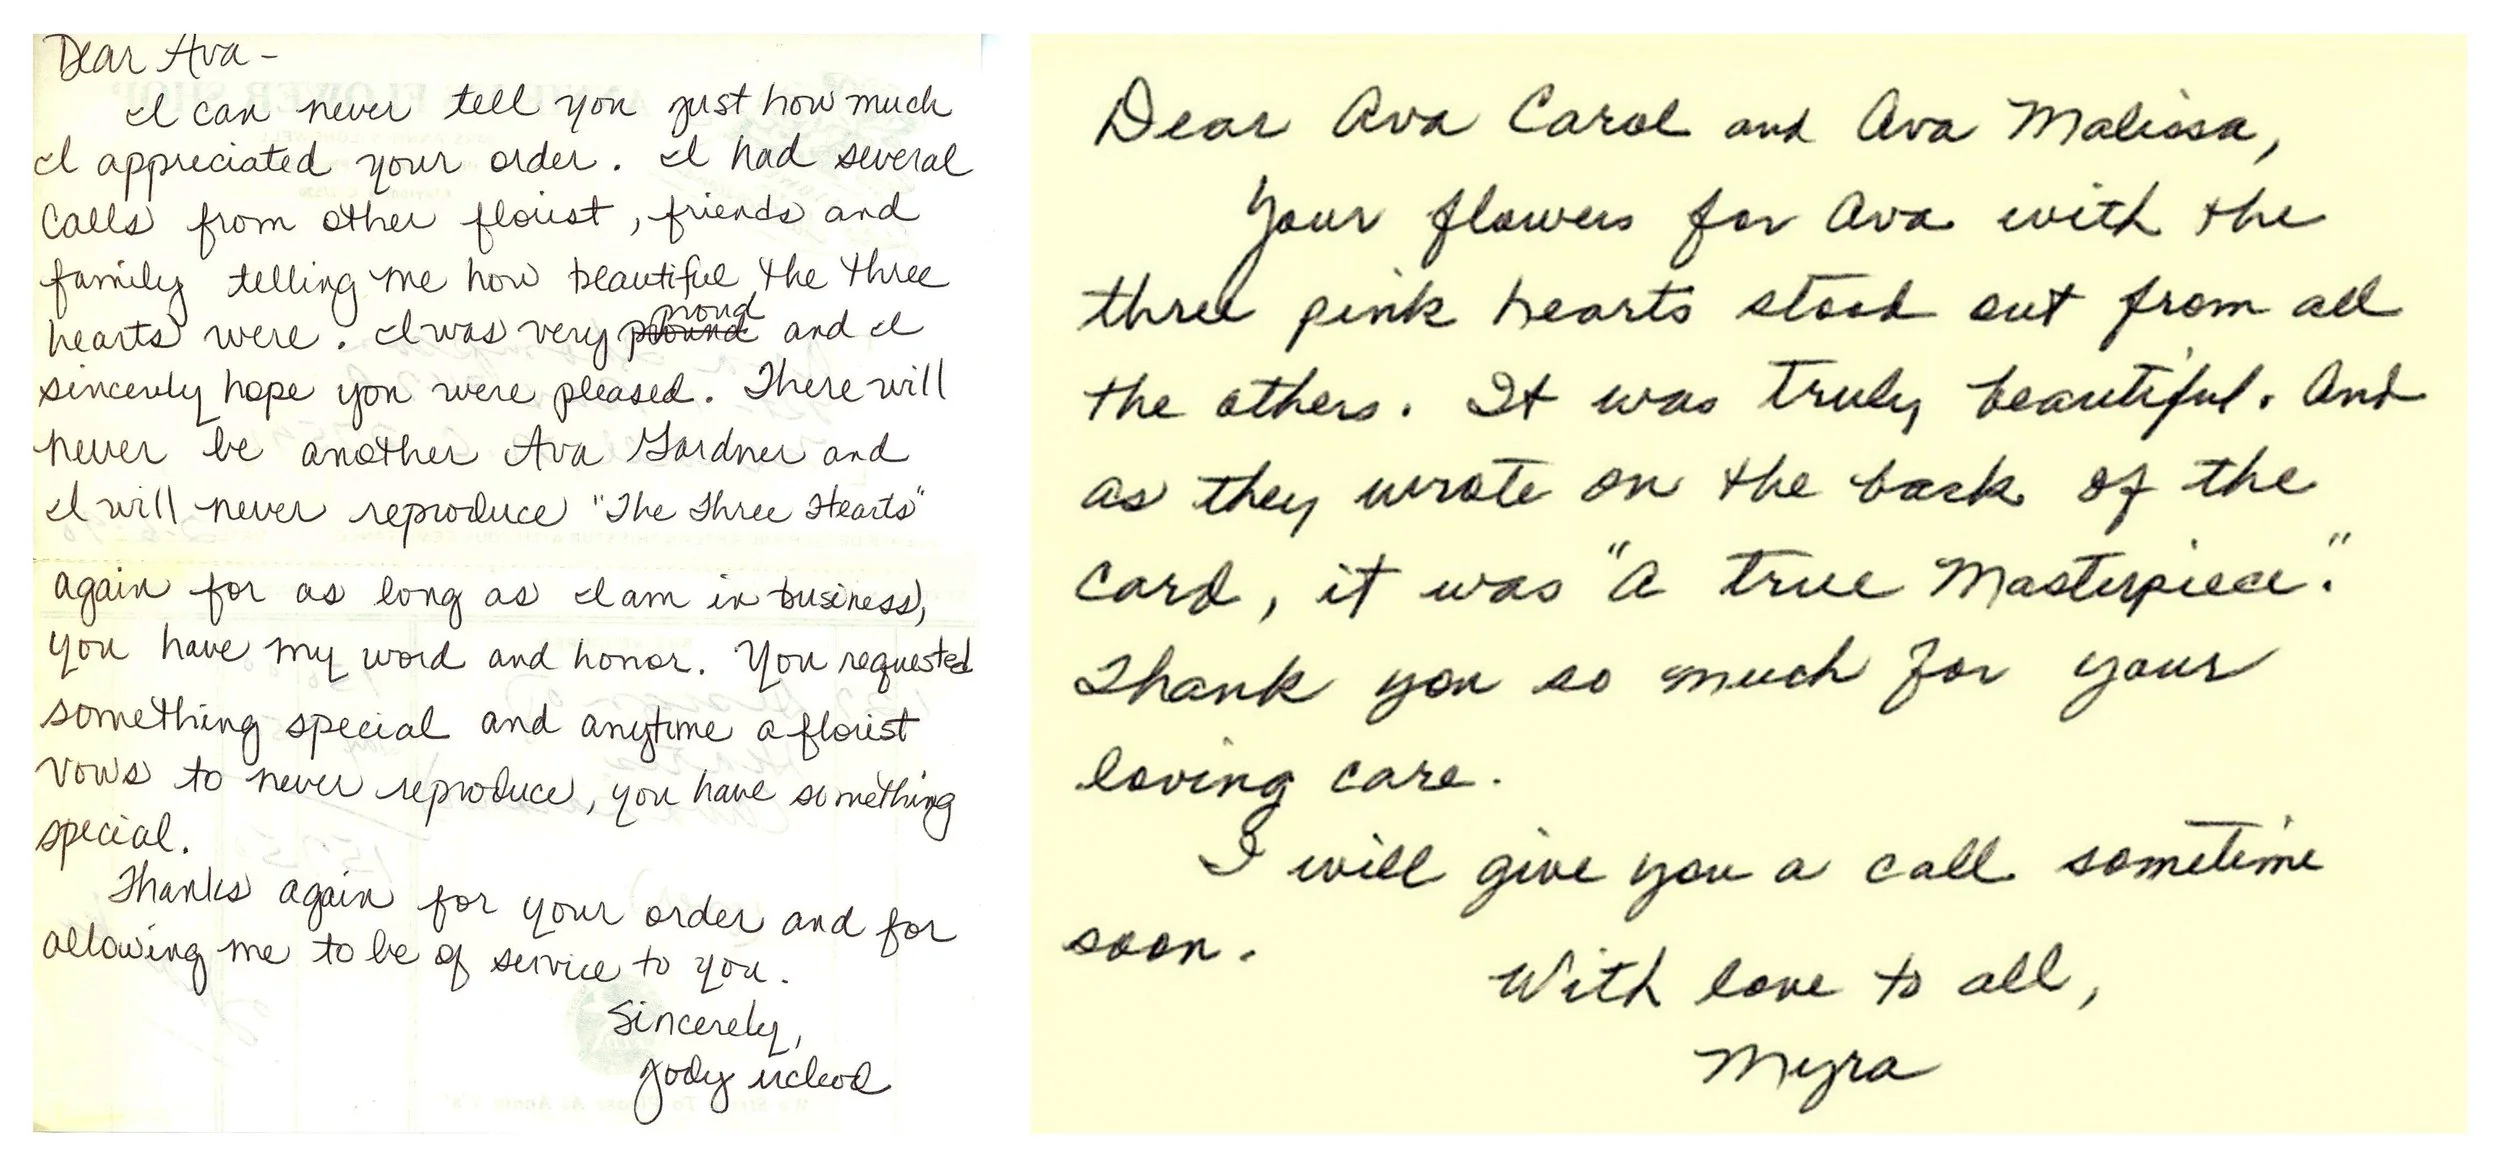 Dear Ava -
I can never tell you just how much
I appreciated your order. I had several
calls from other florist, friends and
family telling me how beautiful the three
hearts were. I was very proud and I
sincerly hope you were pleased. There will
never be another Ava Gardner and
I will never reproduce "The Three Hearts"
again for as long as I am in business,
you have my word and honor. You requested
something special and anytime a florist
vows to never reproduce, you have something
special.
Thanks again for your order and for
allowing me to be of service to you.
Sincerely,
Jody McLeod
Dear Ava Carol and Ava Malissa,
Your flowers for Ava with the
three pink hearts stood out from all
the others. It was truly beautiful. And
as they wrote on the back of the
card, it was "A true Masterpiece."
Thank you so much for your
loving care.
I will give you a call sometime
soon.
With love to all,
Myra